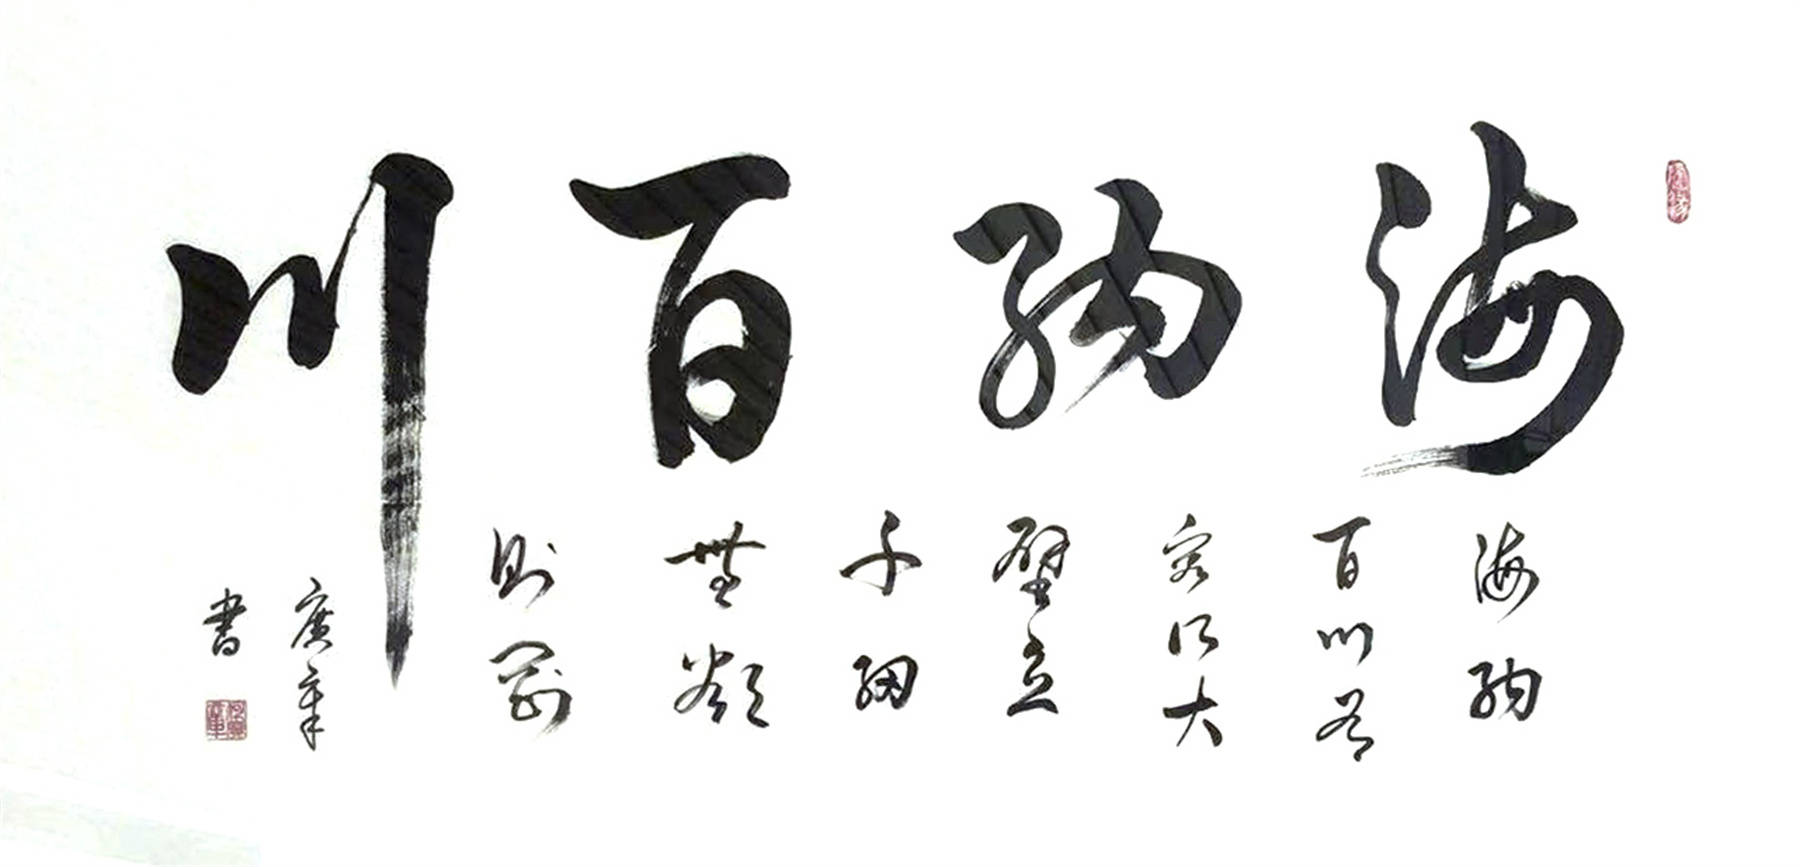 海納百川
海納
百川有
容乃大
壁立
千仞
無欲
則剛
廣章
書